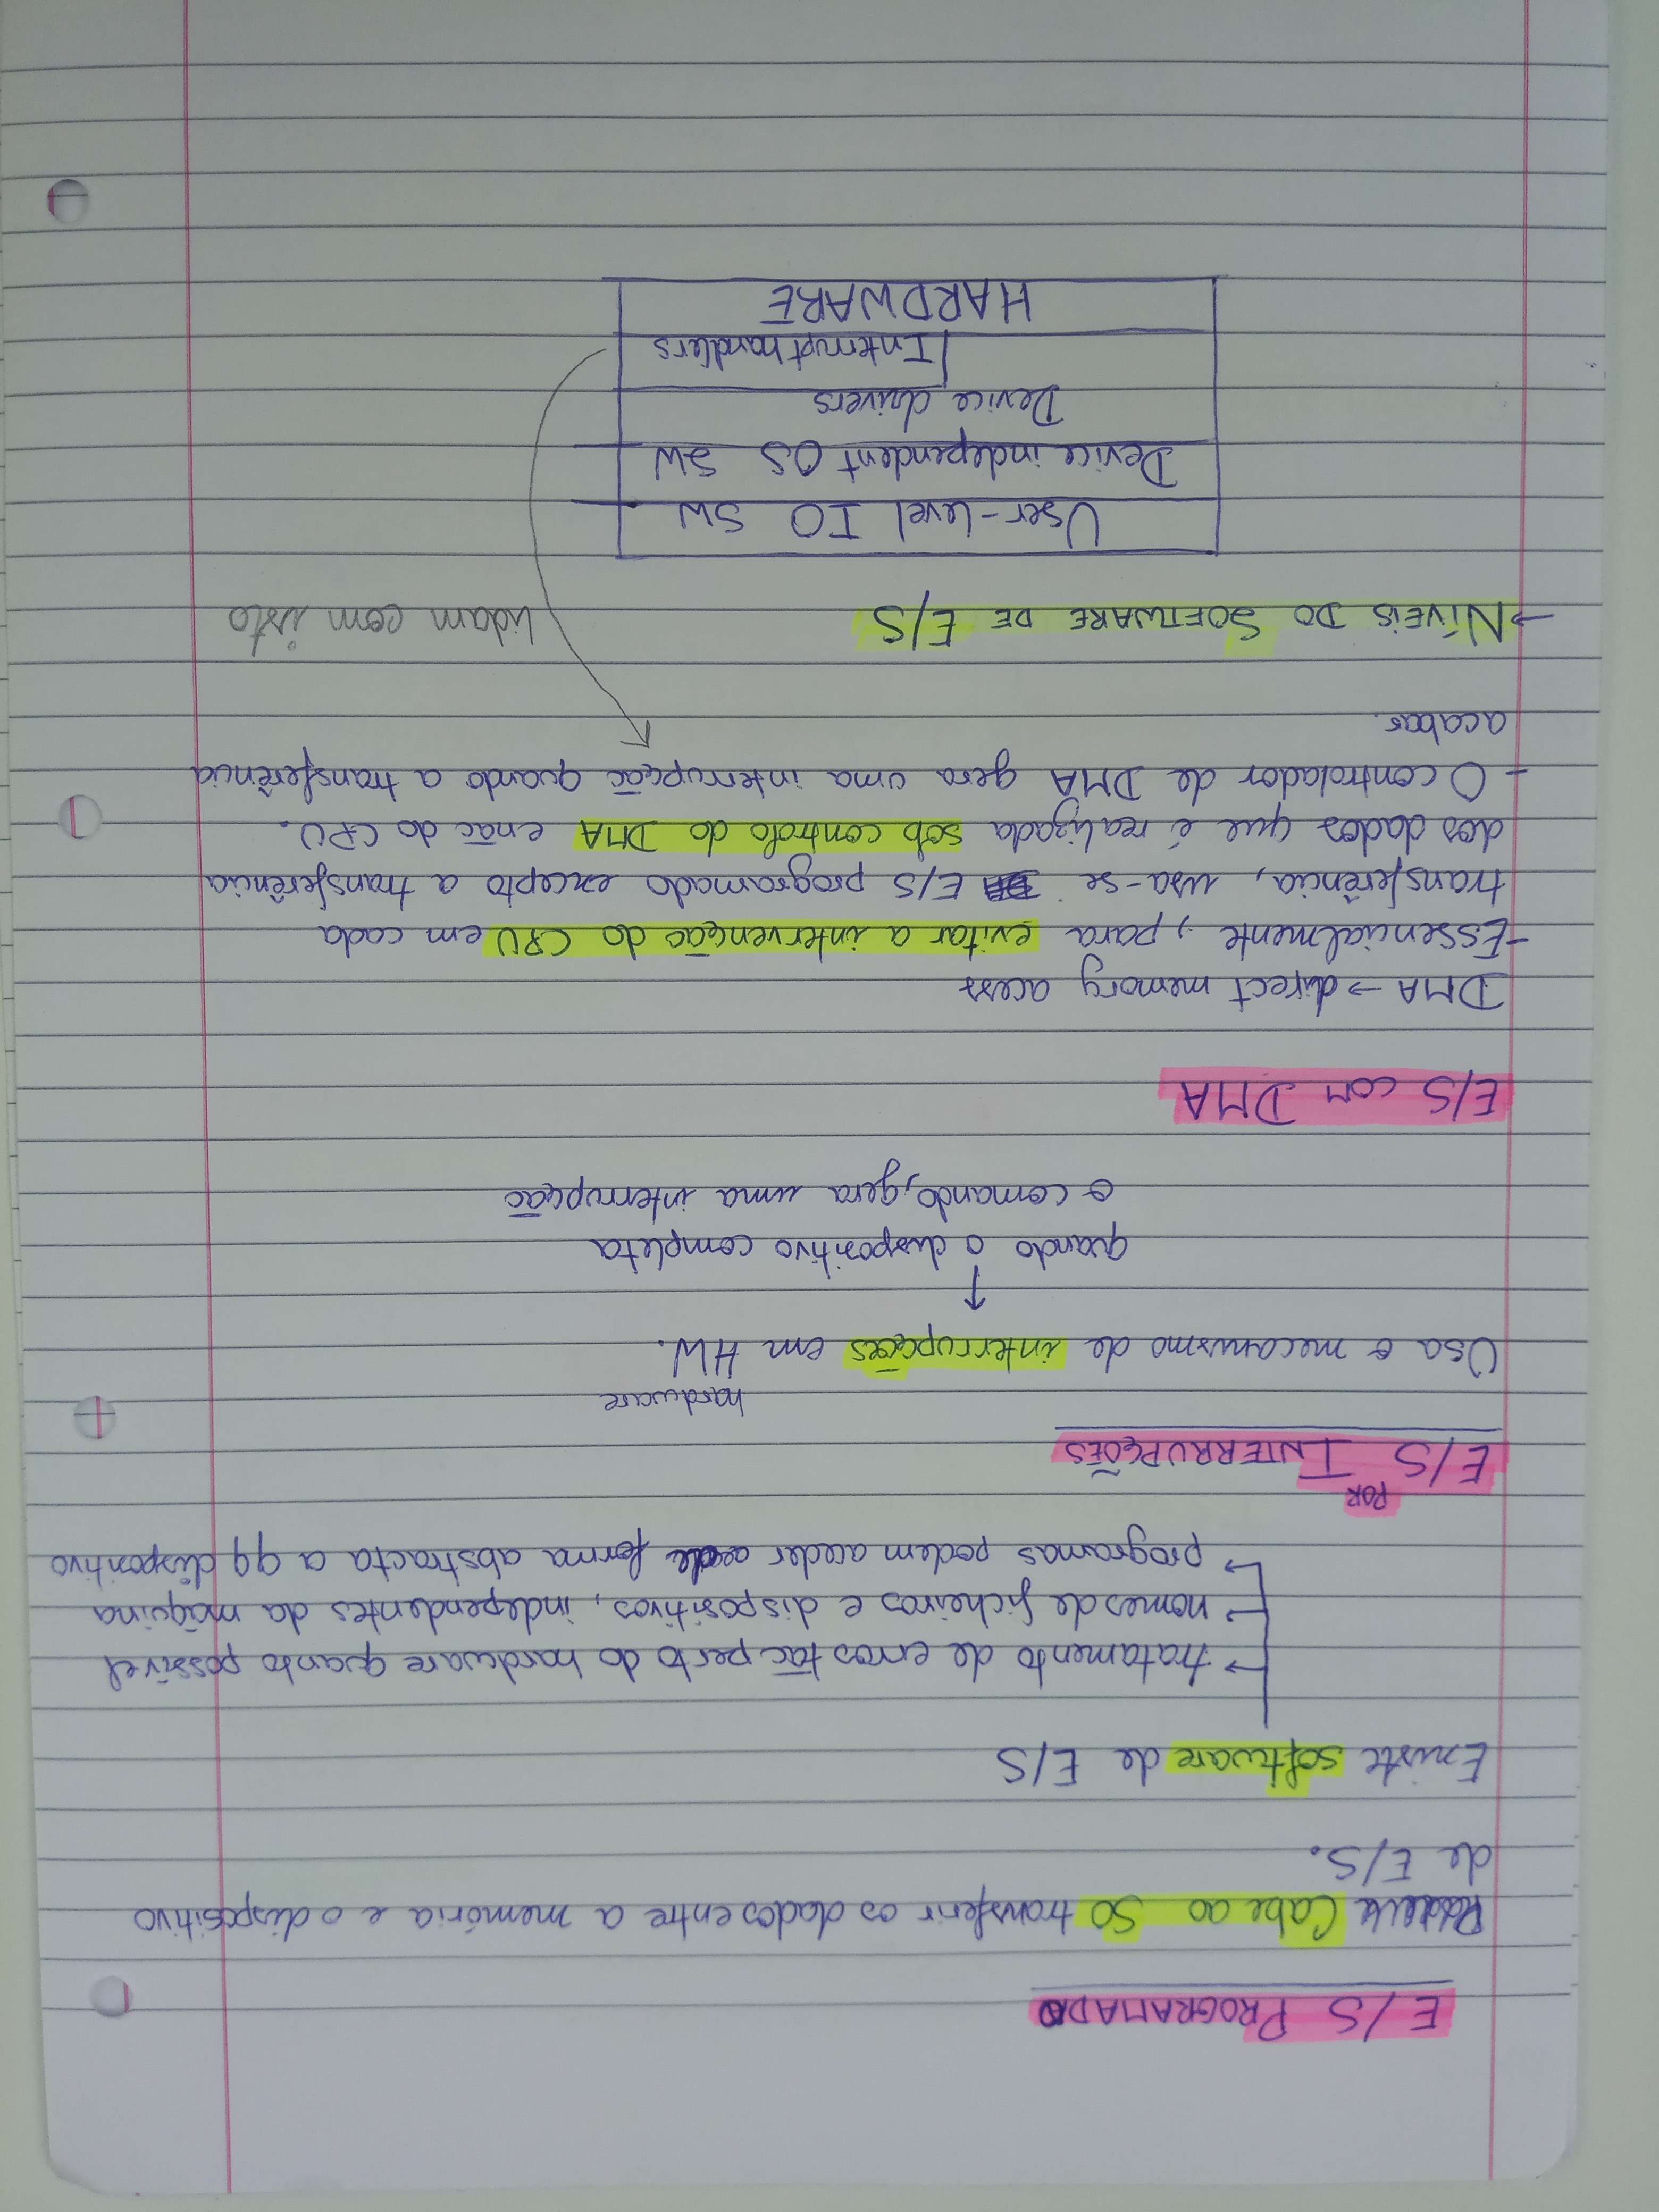 E/S PROGRAMADO
Cabe ao SO transferir os dados entre a memória e o dispositivo
de E/S.
Existe software de E/S
→ tratamento de erros tão perto do hardware quanto possível
→ nomes de ficheiros e dispositivos, independentes da máquina
→ programas podem aceder de forma abstracta a qq dispositivo
POR
E/S INTERRUPÇÕES
hardware
Usa o mecanismo de interrupções em HW.
↑
quando o dispositivo completa
o comando, gera uma interrupção
E/S COM DMA
DMA → direct memory acess
- Essencialmente, para evitar a intervenção do CPU em cada
transferência, usa-se E/S programado excepto a transferência
dos dados que é realizada sob controlo do DMA e não do CPU.
- O controlador de DMA gera uma interrupção quando a transferência
acabar.
→ NÍVEIS DO SOFTWARE DE E/S
lidam com isto
User-level IO SW
Device independent OS SW
Device drivers
Interrupt handlers
HARDWARE